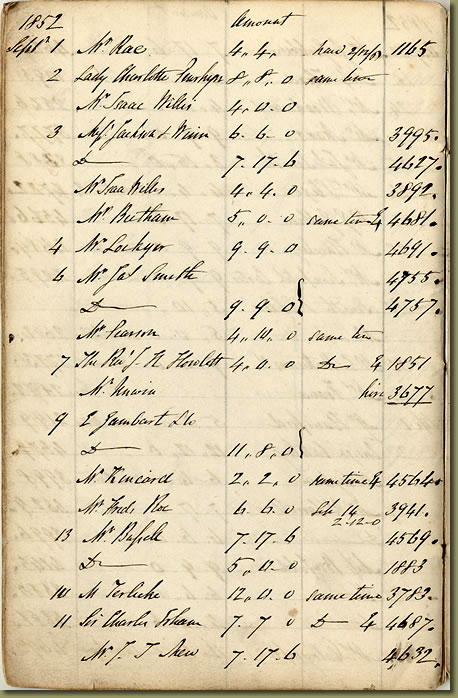 1852 Amount
Septr 1 Mr Rae 4 . 4 . 1165
2 Lady Charlotte 8 . 8 . 0 same time
Mr Isaac Willis 4 . 0 . 0
3 Jackson & 6 . 6 . 0 3995.
Do 7 . 17 . 6 4627.
Mr Isaac Willis 4 . 4 . 0 3892.
Mr Beetham 5 . 0 . 0 same time & 4681.
4 Mr Lockyer 9 . 9 . 0 4691.
6 Mr Jas Smith 4755.
Do 9 . 9 . 0 4757.
Mr Pearson 4 . 10 . 0 same time
7 The Revd J. H Howlett 4 . 0 . 0 Do & 1851
Mr Unwin hire 3677.
9 E Gambart & Co
Do 11 . 8 . 0
Mr 2 . 2 . 0 same time & 4564.
Mr Fredk Roe 6 . 6 . 0 14 3941.
2-12-0
13 Mr Bussell 7 . 17 . 6 4569.
Do 5 . 0 . 0 1883
10 M 12 . 0 . 0 same time 3783.
11 Sir Charles 7 . 7 0 Do & 4687.
Mr J. J 7 . 17 . 6 4632.